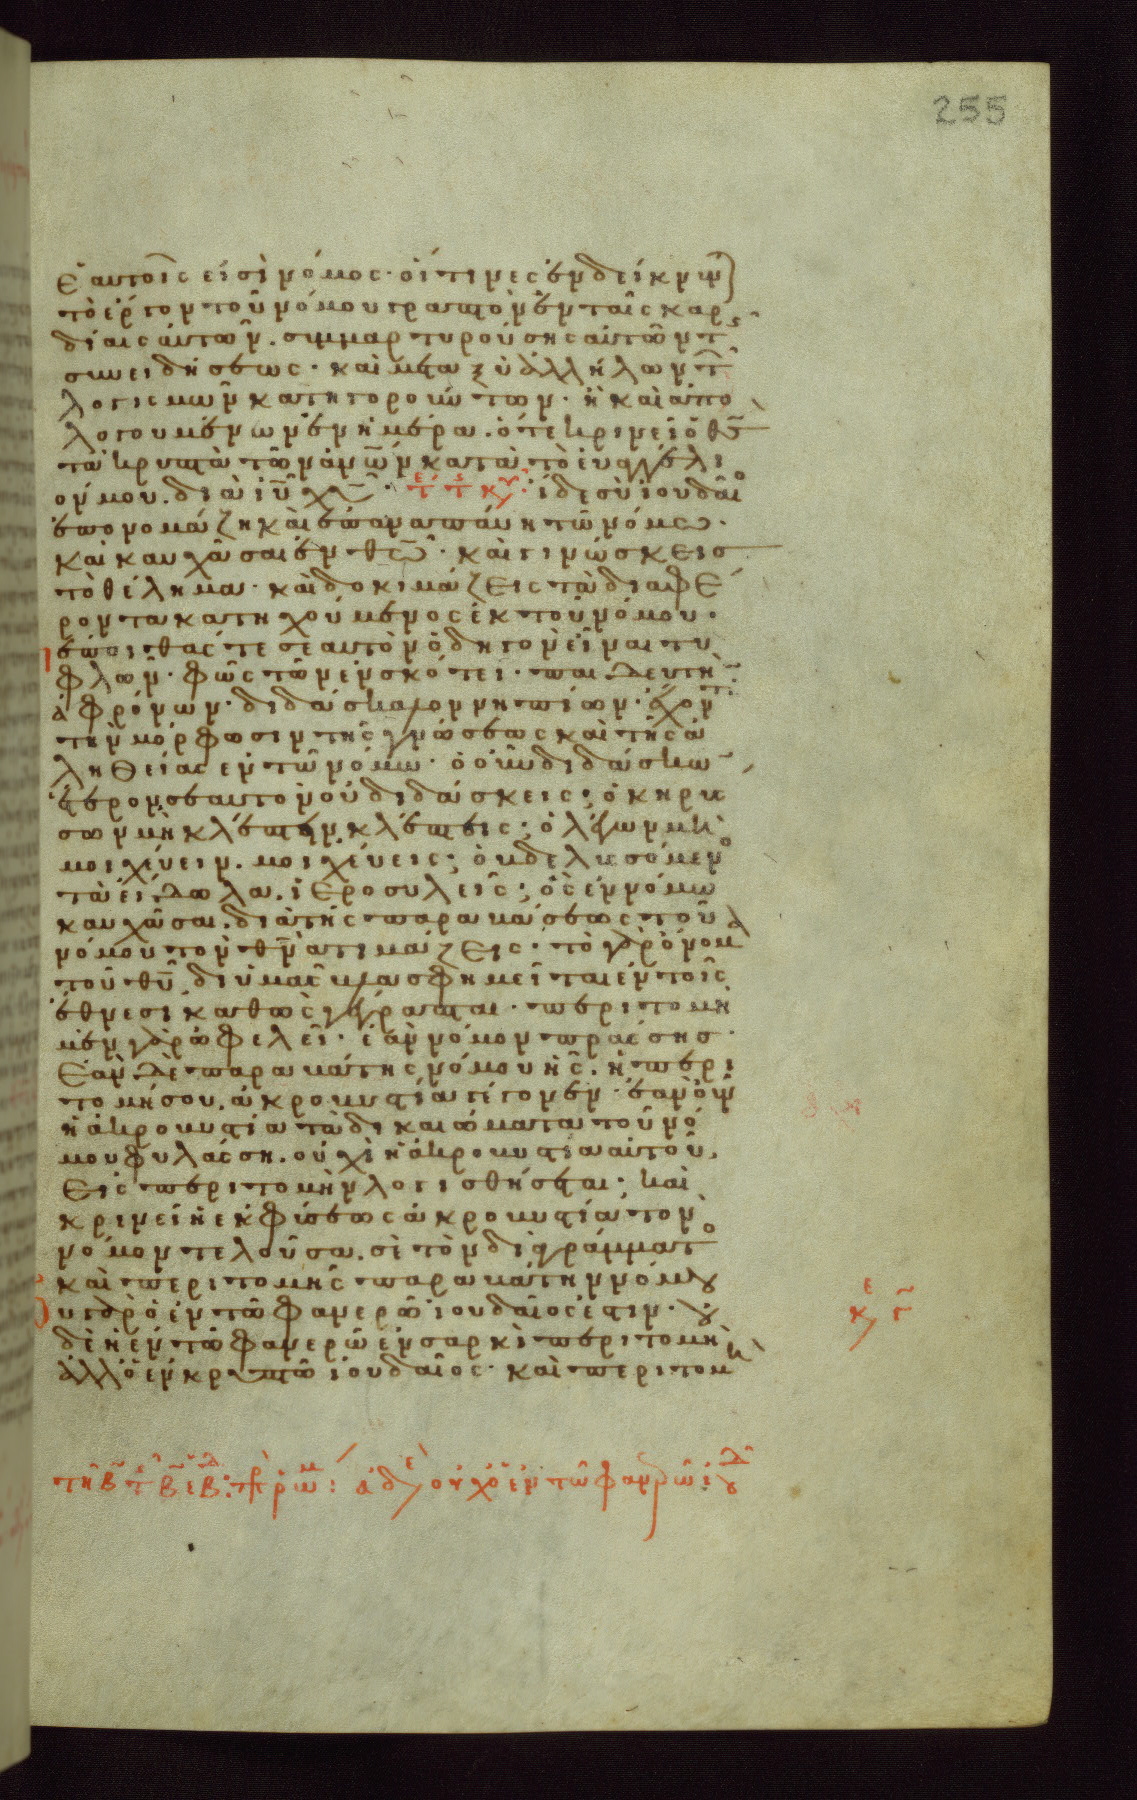 255
ἑαυτοῖς εἰσὶ νόμος· οἵτινες ἐνδείκνυν
τὸ ἔργον τοῦ νόμου γραπτὸν ἐν ταῖς καρ
δίαις αὐτῶν. συμμαρτυρούσης αὐτῶν τ
συνειδήσεως· καὶ μεταξὺ ἀλλήλων τ
λογισμῶν κατηγορούντων· ἢ καὶ ἀπο
λογουμένων ἐν ἡμέρα. ὅτε κρινεῖ ὁ θς
τὰ κρυπτὰ τῶν ἀνων κατὰ τὸ εὐαγγέλι
όν μου. διὰ ιυ χυ· ἴδε σὺ ἰουδαῖο
ἐπονομάζη καὶ ἐπαναπαύη τῶ νόμω.
καὶ καυχᾶσαι ἐν θεω· καὶ γινώσκεις
τὸ θέλημα· καὶ δοκιμάζεις τὰ διαφέ
ροντα κατηχούμενος ἐκ τοῦ νόμου.
πέποιθάς τε σεαυτὸν ὁδηγὸν εἶναι τυ
φλῶν· φῶς τῶν ἐν σκότει· παιδευτὴ
ἀφρόνων· διδάσκαλον νηπίων· ἔχοντ
τὴν μόρφωσιν τῆς γνώσεως καὶ τῆς ἀ
ληθείας ἐν τῶ νόμω· ὁ οὖν διδάσκω
ἕτερον σεαυτὸν οὐ διδάσκεις; ὁ κηρύ
σων μὴ κλέπτειν κλέπτεις; ὁ λέγων μὴ
μοιχεύειν. μοιχεύεις; ὁ βδελυσόμενο
τὰ εἴδωλα. ἱεροσυλεῖς; ὃς ἐν νόμω
καυχᾶσαι. διὰ τῆς παραβάσεως τοῦ
νόμου τὸν θν ἀτιμάζεις· τὸ γὰρ ὄνομα
τοῦ θυ δι' ὑμᾶς βλασφημεῖται ἐν τοῖς
ἔθνεσι καθὼς γέγραπται· περιτομὴ
μὲν γὰρ ὠφελεῖ· ἐὰν νόμον πράσσης·
ἐὰν δὲ παραβάτης νόμου ἦς. ἡ περι
τομή σου. ἀκροβυστία γέγονεν· ἐὰν οὖν
ἡ ἀκροβυστία τὰ δικαιώματα τοῦ νό
μου φυλάσση. οὐχὶ ἡ ἀκροβυστία αὐτοῦ,
εἰς περιτομὴν λογισθήσεται; καὶ
κρινεῖ ἡ ἐκ φύσεως ἀκροβυστία τὸν
νόμον τελοῦσα. σὲ τὸν διὰ γράμματο
καὶ περιτομῆς παραβάτην νόμου
οὐ γὰρ ὁ ἐν τῶ φανερῶ ἰουδαῖος ἐστιν· οὐ
δὲ ἡ ἐν τῶ φανερῶ ἐν σαρκὶ περιτομὴ
ἀλλ' ὁ ἐν κρυπτῶ ἰουδαῖος· καὶ περιτομὴ
ἀδε οὐχ ὁ ἐν τῶ φανερῶ ιουδ